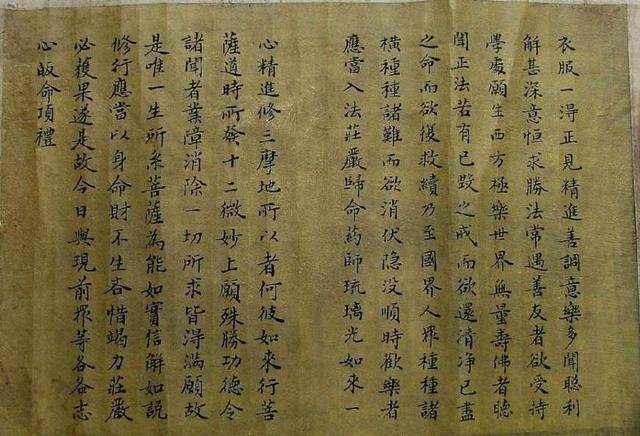 衣服一得正見精進善調意樂多聞聡利
解甚深意恒求勝法常遇善友者欲受持
學處願生西方極樂世界無量壽佛者聴
聞正法若有已毀之戒而欲還清淨已盡
之命而欲復救續乃至國界人衆種種諸
橫種種諸難而欲消伏隐没順時歡樂者
應當入法莊嚴歸命藥師琉璃光如來一
心精進修三摩地所以者何彼如來行菩
薩道時所發十二微妙上願殊勝功德令
諸聞者業障消除一切所求皆得滿願故
是唯一生所系菩薩為能如實信解如説
修行應當以身命財不生吝惜竭力莊嚴
必獲果遂是故今日與現前衆等各各志
心皈命頂禮